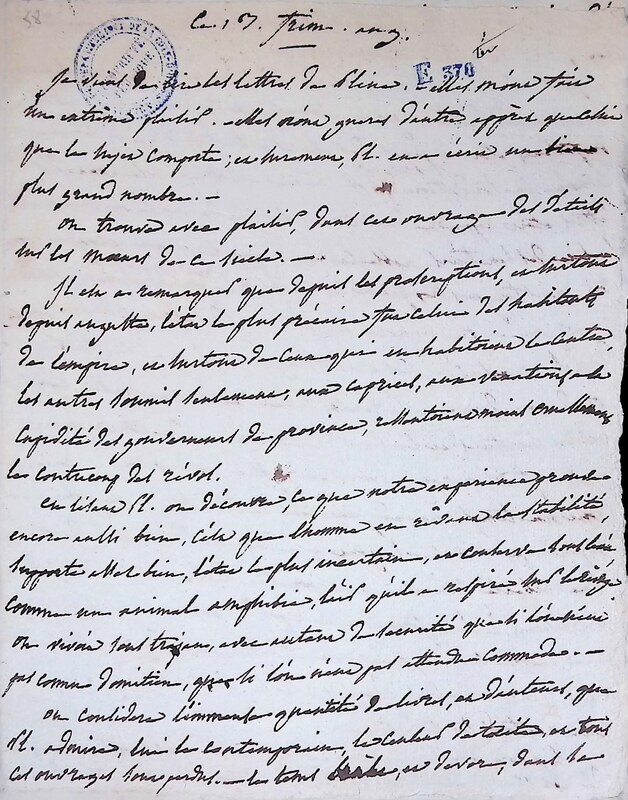 58
le 13. frim. an 9.
E 370 ter
Je viens de lire les lettres de Pline. - elles m'ont fait
un extrême plaisir. - elles n'ont gueres d'autre apprêt que celui
que le sujet comporte ; et surement, Pl. en a écrit un bien
plus grand nombre. -
on trouve avec plaisir, dans cet ouvrage des détails
sur les mœurs de ce siecle. -
Il est a remarquer que depuis les proscriptions, et surtout
depuis auguste, l'état le plus précaire fut celui des habitants
de l'empire, et surtout de ceux qui en habitoient le centre,
les autres soumis seulement, aux caprices, aux vexations, a la
cupidité des gouverneurs de province, ressentoient moins cruellement
les contrecoups des révol.
en lisant Pl. on découvre, ce que notre expérience prouve
encore aussi bien, c'est que l'homme en rêvant la stabilité,
supporte assez bien, l'état le plus incertain, et conserve tous
comme un animal amphibie, l'air qu'il a respiré sur le rivage
on vivoit sous trajan, avec autant de sécurité que si l'on n'eut
pas connu domitien, que si l'on n'eut pas attendu commode. -
on considere l'immense quantité de livres, et d'auteurs, que
Pl. admire, lui le contemporain, le censeur de tacite, et tous
ces ouvrages sont perdus. - le tems et devore, dans la